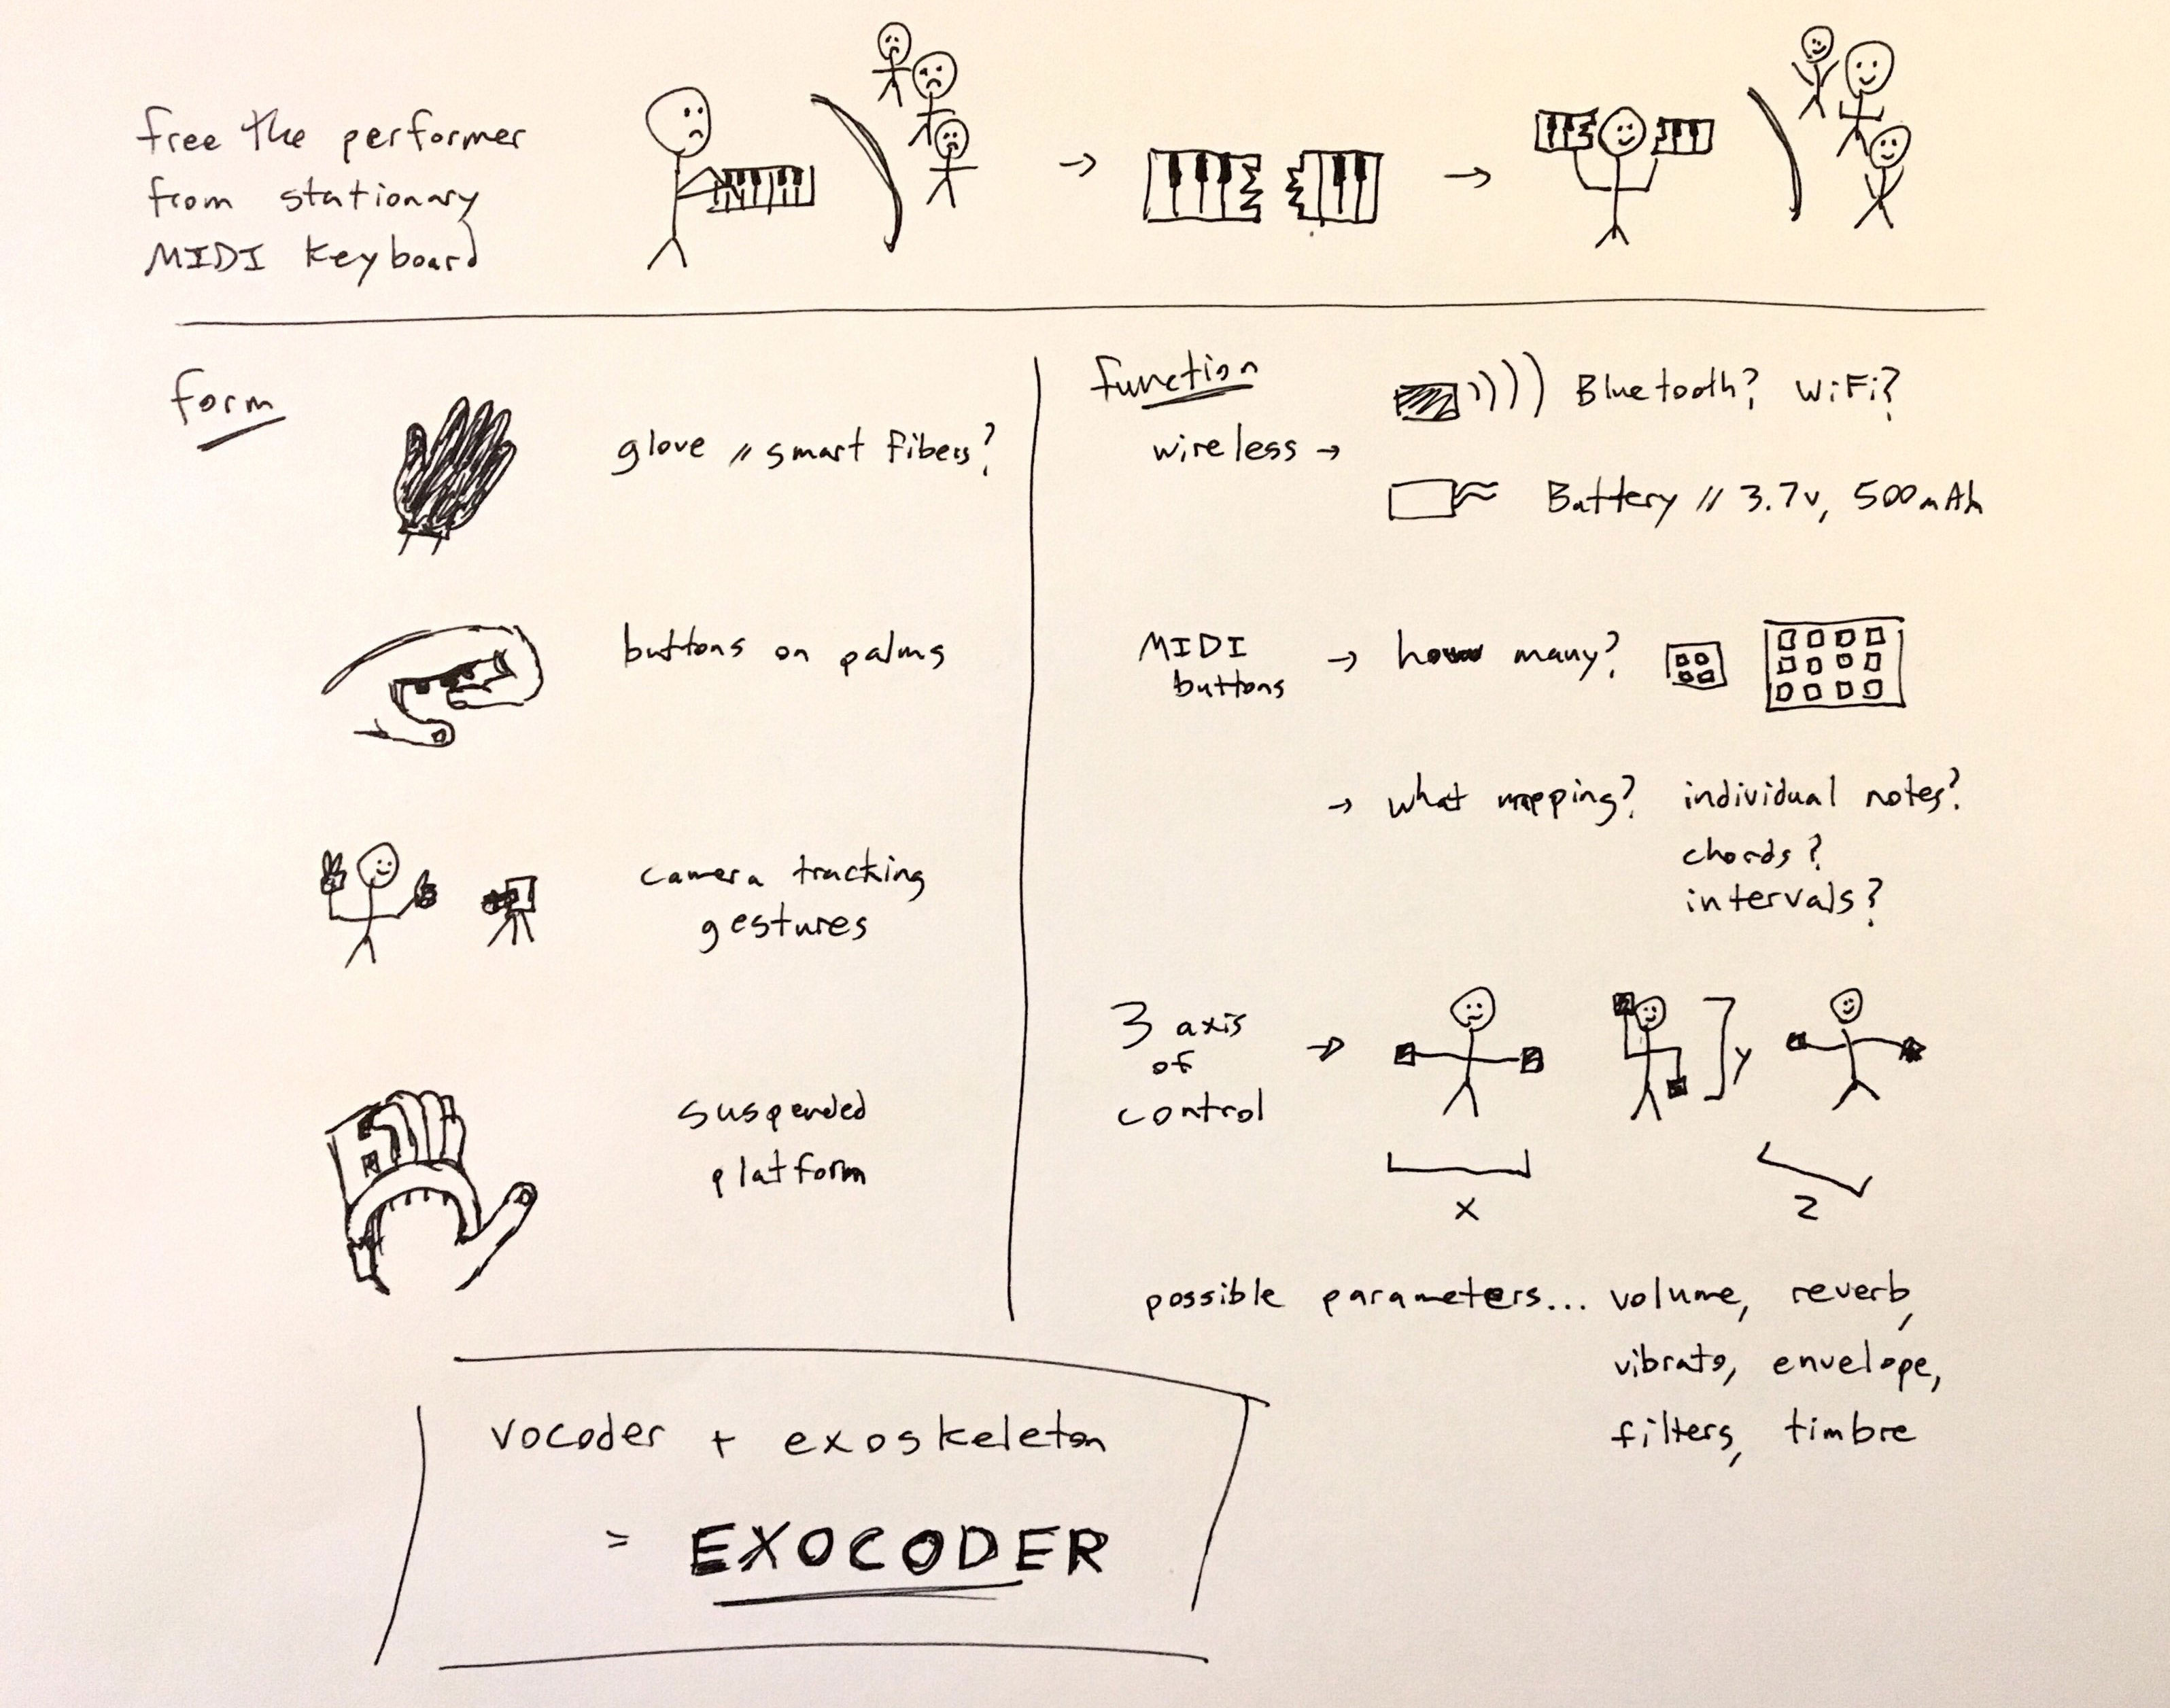 free the performer
from stationary
MIDI keyboard
form
glove // smart fibers?
buttons on palms
camera tracking
gestures
suspended
platform
function
wireless → Bluetooth? WiFi?
Battery // 3.7v, 500mAh
MIDI
buttons
→ how many?
→ what mapping? individual notes?
chords?
intervals?
3 axis
of
control
→
x
y
z
possible parameters... volume, reverb,
vibrato, envelope,
filters, timbre
vocoder + exoskeleton
= EXOCODER